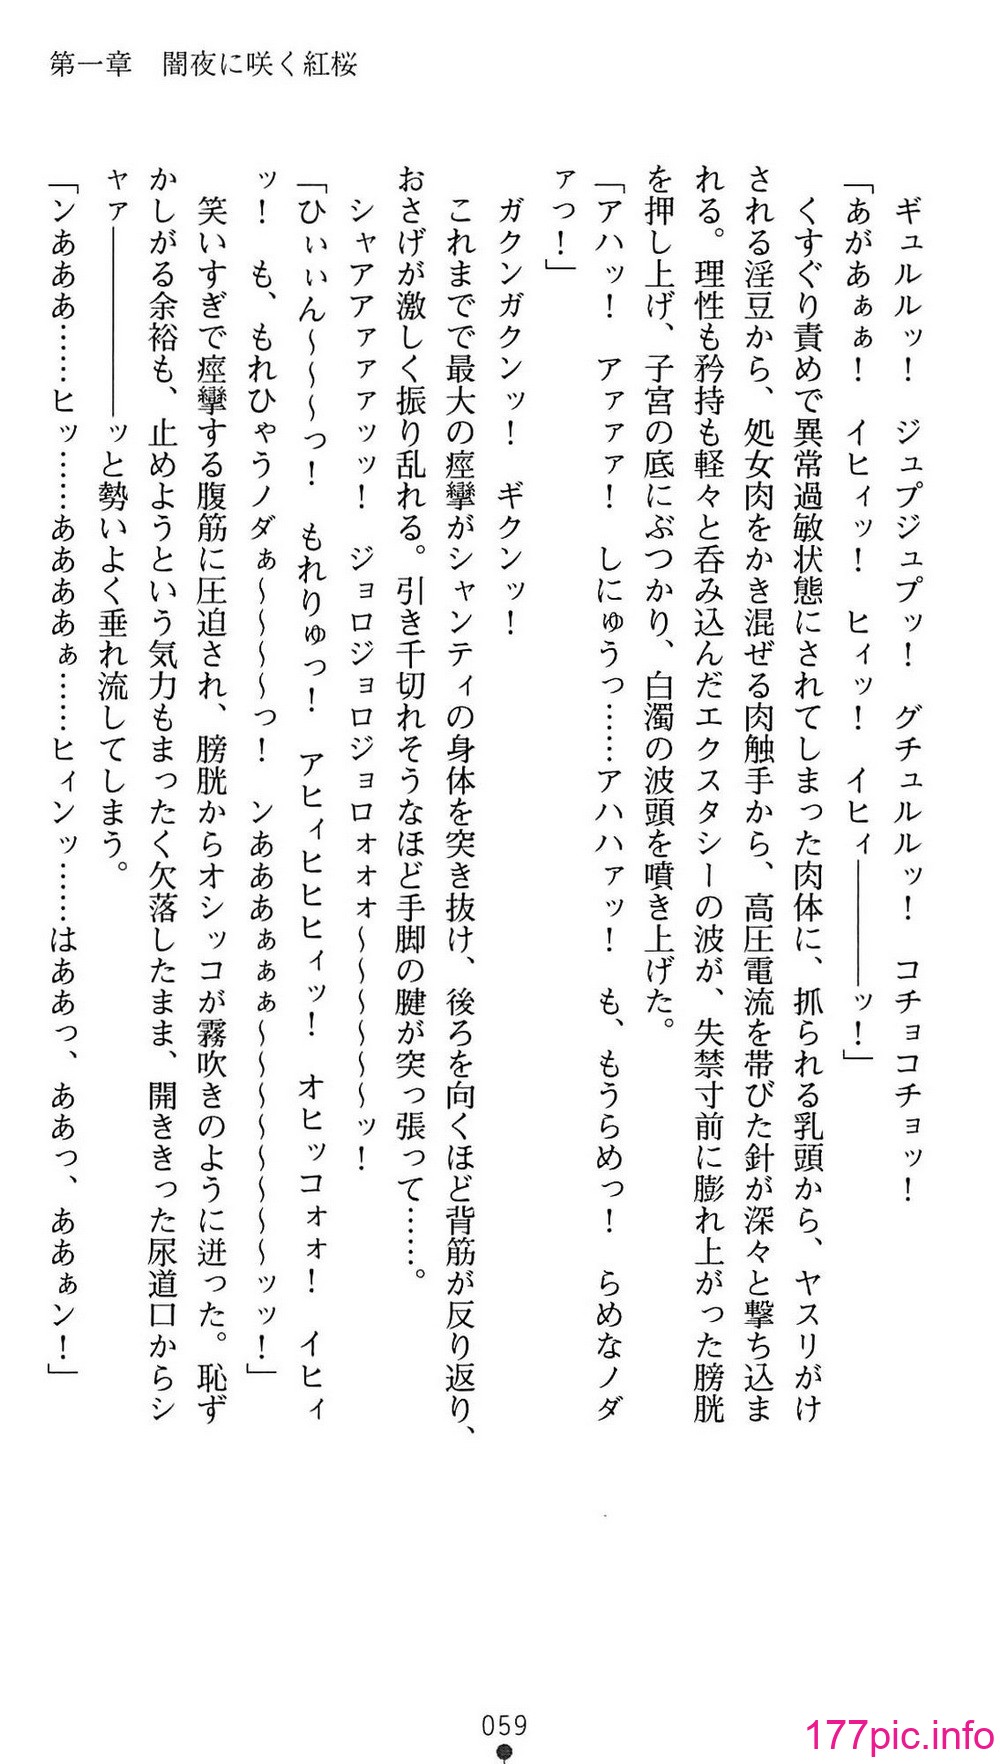 第一章　闇夜に咲く紅桜
ギュルルッ！　ジュプジュプッ！　グチュルルッ！　コチョコチョッ！
「あがあぁぁ！　イヒィッ！　ヒィッ！　イヒィ――――ッ！」
くすぐり責めで異常過敏状態にされてしまった肉体に、抓られる乳頭から、ヤスリがけ
される淫豆から、処女肉をかき混ぜる肉触手から、高圧電流を帯びた針が深々と撃ち込ま
れる。理性も矜持も軽々と呑み込んだエクスタシーの波が、失禁寸前に膨れ上がった膀胱
を押し上げ、子宮の底にぶつかり、白濁の波頭を噴き上げた。
「アハッ！　アァァァ！　しにゅうっ……アハハァッ！　も、もうらめっ！　らめなノダ
ァっ！」
ガクンガクンッ！　ギクンッ！
これまでで最大の痙攣がシャンティの身体を突き抜け、後ろを向くほど背筋が反り返り、
おさげが激しく振り乱れる。引き千切れそうなほど手脚の腱が突っ張って……。
シャアアァァァッッ！　ジョロジョロジョロォォォ～～～～～～ッ！
「ひぃぃん～～～っ！　もれりゅっ！　アヒィヒヒヒィッ！　オヒッコォォ！　イヒィ
ッ！　も、もれひゃうノダぁ～～～～～っ！　ンあああぁぁぁ～～～～～～～～ッッ！」
笑いすぎで痙攣する腹筋に圧迫され、膀胱からオシッコが霧吹きのように迸った。恥ず
かしがる余裕も、止めようという気力もまったく欠落したまま、開ききった尿道口からシ
ャァ――――――ッと勢いよく垂れ流してしまう。
「ンあああ……ヒッ……あああああぁ……ヒィンッ……はああっ、ああっ、ああぁン！」
059
177pic.info